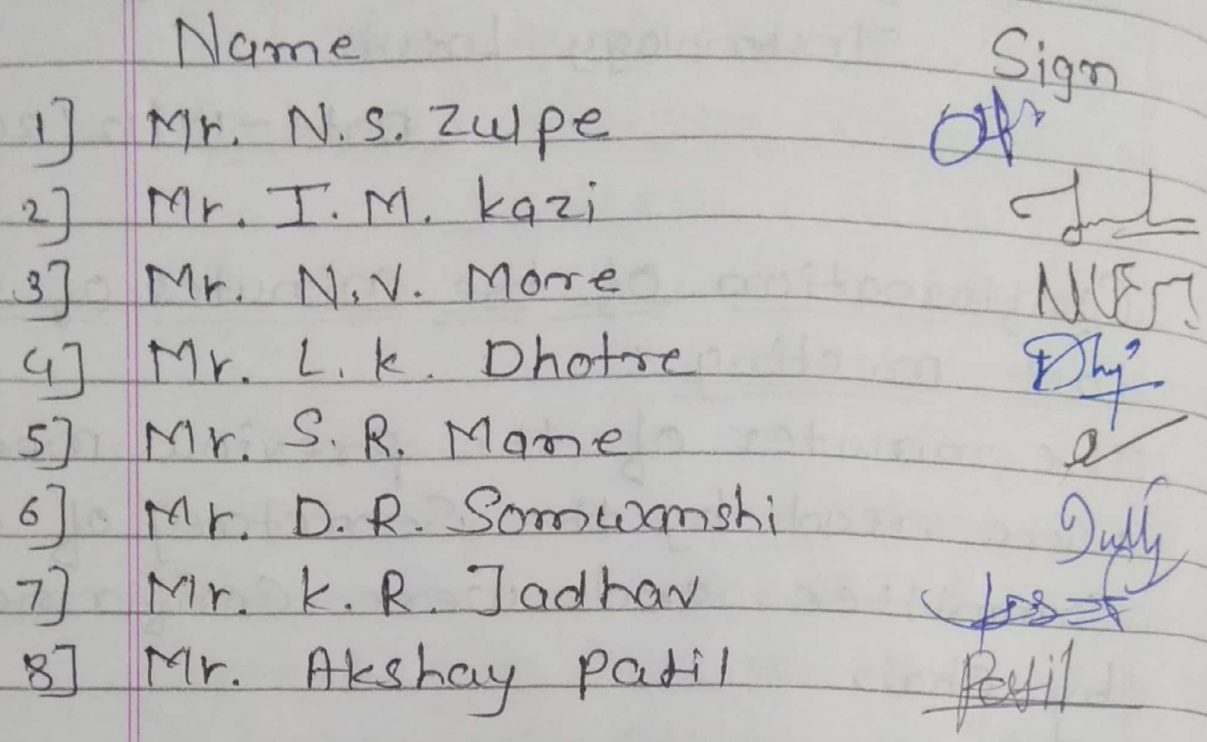 Name Sign
1] Mr. N.S. Zulpe
2] Mr. I.M. Kazi
3] Mr. N.V. More
4] Mr. L.K. Dhotre
5] Mr. S.R. Mane
6] Mr. D.R. Somwanshi
7] Mr. K.R. Jadhav
8] Mr. Akshay Patil Patil